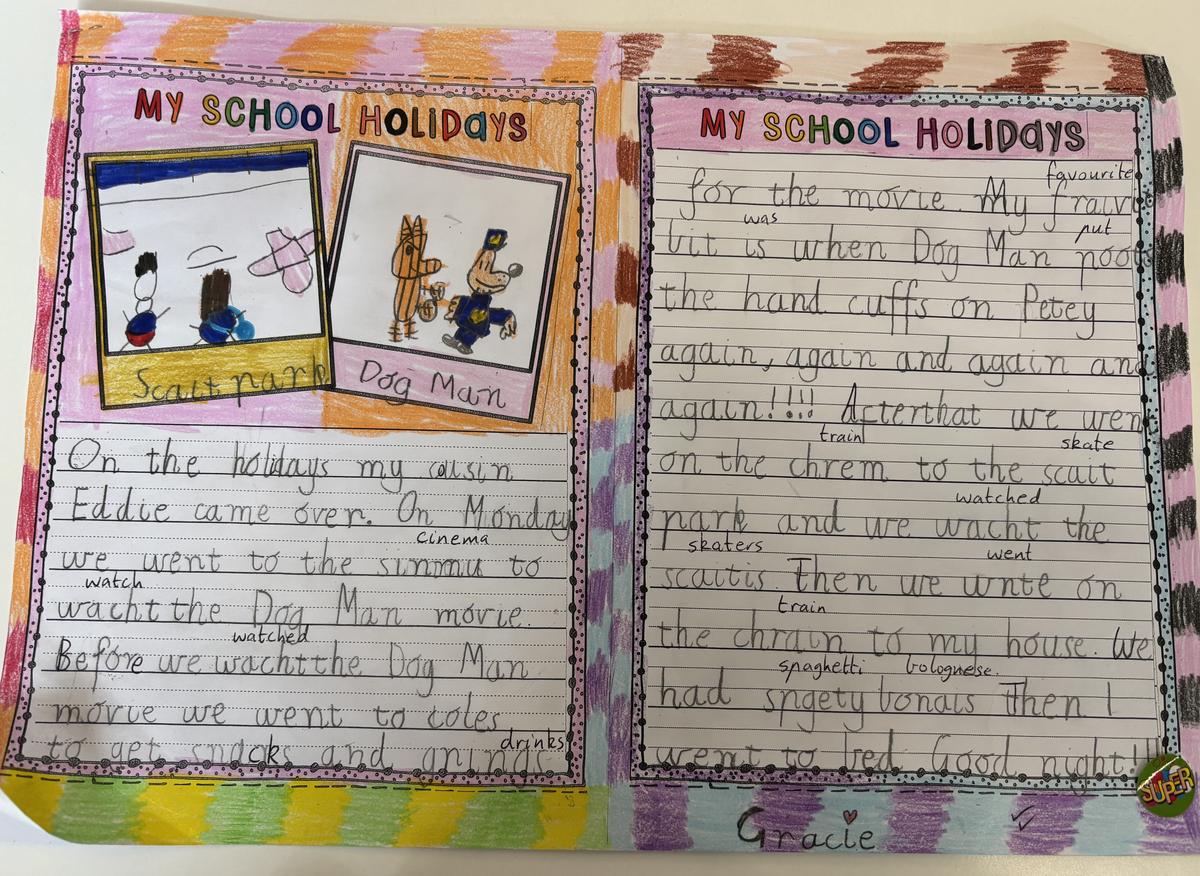 MY SCHOOL HOLIDAYS
Scait park
Dog Man
On the holidays my cousin
Eddie came over. On Monday
cinema
we went to the sinmu to
watch
wacht the Dog Man movie.
watched
Before we wacht the Dog Man
movie we went to coles
drinks
to get snacks and
MY SCHOOL HOLIDAYS
favourite
for the movie. My
was put
bit is when Dog Man
the hand cuffs on Petey
again, again and again and
again!!!! Afterthat we went
train skate
on the chrem to the scait
watched
park and we wacht the
skaters went
scaitis. Then we wnte on
train
the chrain to my house. We
spaghetti bolognese.
had spgety bonais Then I
went to bed Good night!!
SUPER
Gracie